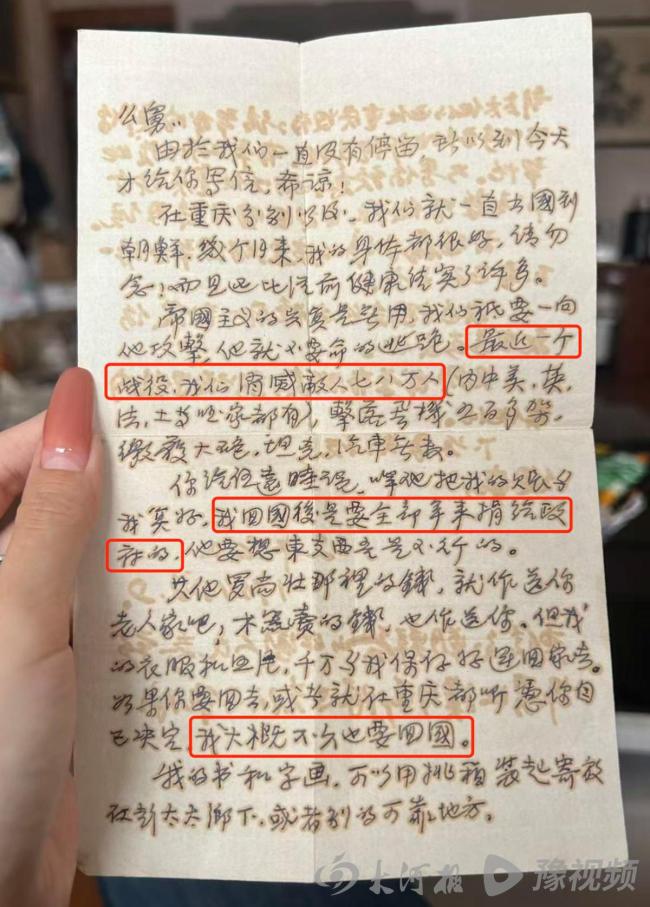 么舅：
由於我们一直没有停留，所以到今天
才给你写信，希谅！
在重庆分别以后，我们就一直出國到
朝鮮，幾个月来，我的身体都很好，请勿
念！而且也比从前健康结实了许多。
帝國主义的兵真是无用，我们祇要一向
他攻擊，他就不要命的逃跑。最近一个
战役，我们消滅敵人七八万人（内中美，英，
法，土等国家都有），擊落飛機 百多架，
缴获大砲，坦克，汽車无数。
你说任遠 ，把我的
我真好，我回國後是要全部拿来捐给政
府的，他要想東支西支是不行的。
其他罗尚壮那裡的錢，就作送你
老人家吧，木器賣的錢，也作送你。但我
的衣服和 ，千万与我保存好 回家去。
如果你要回去，或者就在重庆都听憑你自
己决定，我大概不久也要回國。
我的书和字画，可以用挑箱装起寄放
在彭太太郷下，或者别的可靠地方。
大河报 豫视频